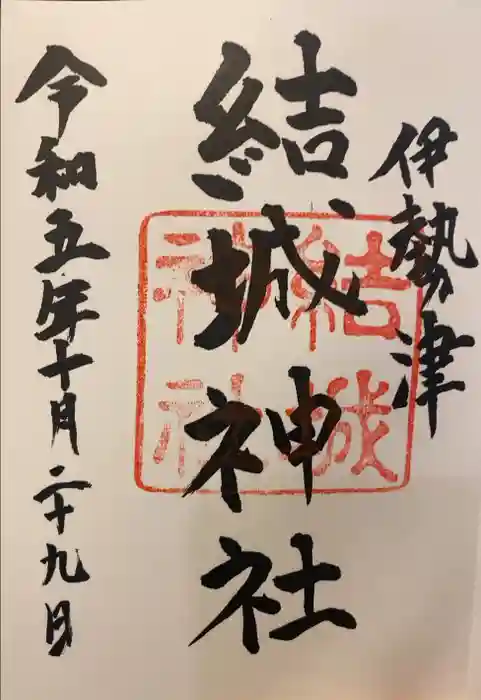 伊勢津
結城神社
結城
神社
令和五年十月二十九日